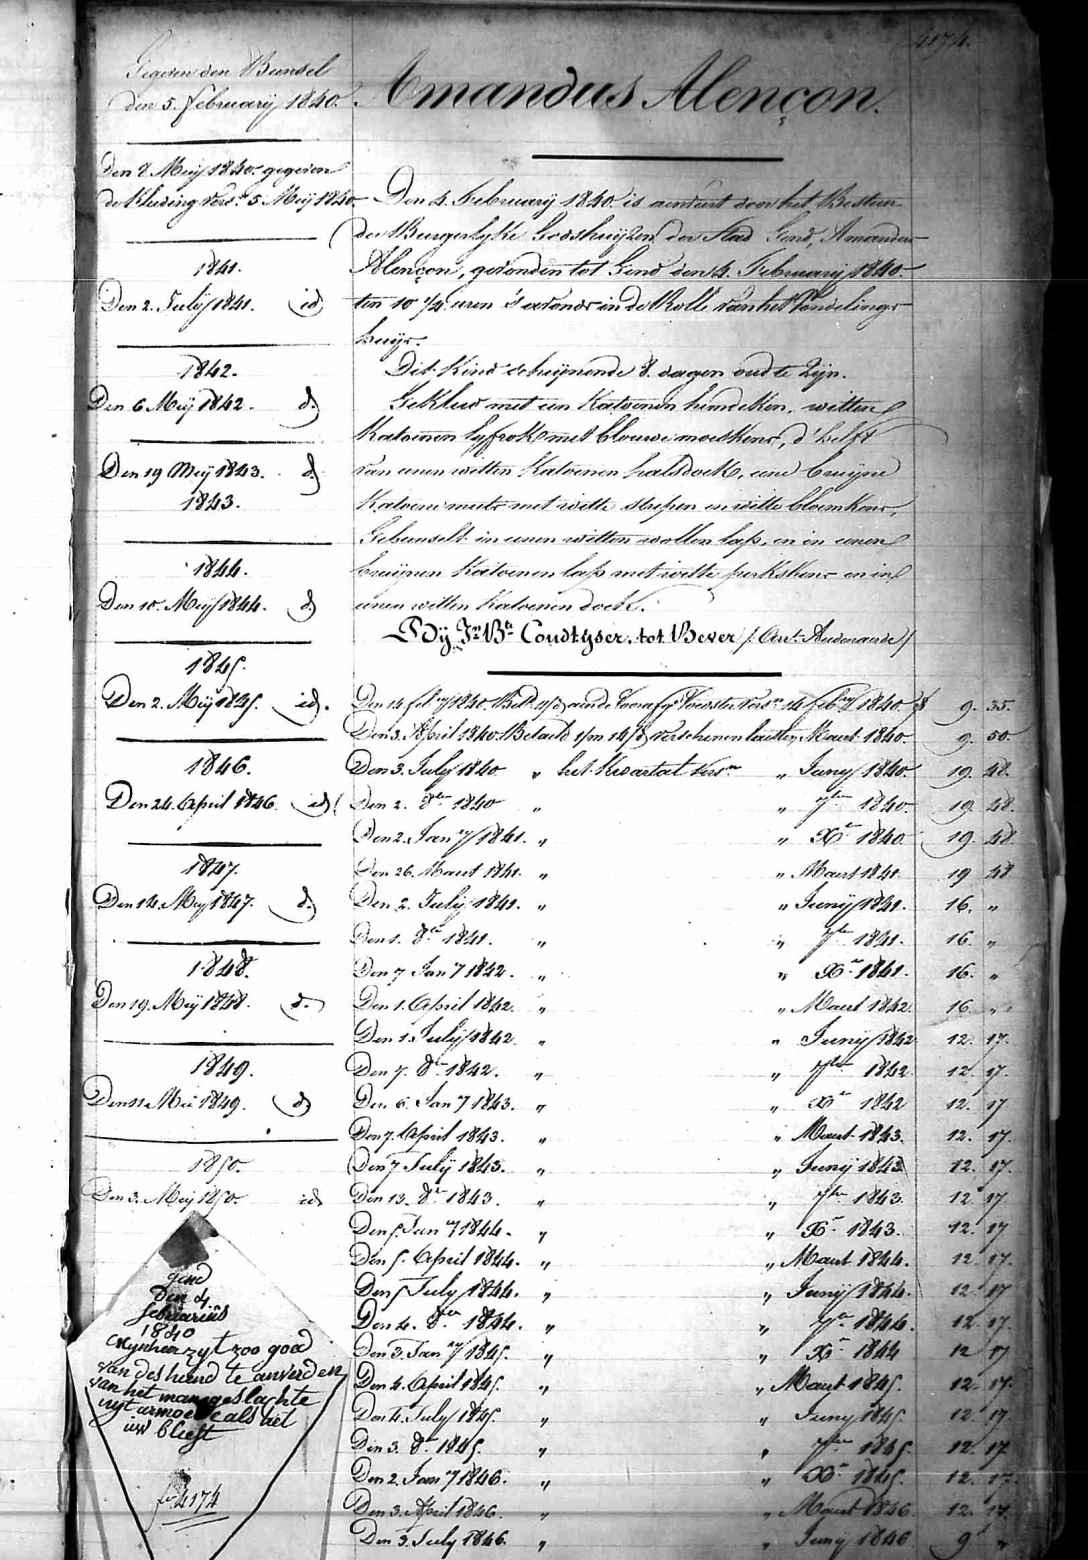 4174.
Amandus Alençon.
Gegeven den Bunsel
den 5. february 1840.
Den 8 Meij 1840 gegeven
de Kleding vers. 5 Meij 1840
1841.
Den 2. Julij 1841. id
1842.
Den 6 Meij 1842. d.
Den 19 Meij 1843. d.
1843.
1844.
Den 10. Meij 1844. d
1845.
Den 2. Meij 1845. id.
1846.
Den 24. April 1846 id
1847.
Den 14. Mey 1847. d.
1848.
Den 19. Meij 1848. d.
1849.
Den 11 Mei 1849. d
1850.
Den 3. Meij 1850. id
Gend
Den 4
februariüs
1840
Mynheer zyt zoo goed
van des kind te anverden
van het mansgeslachte
uyt armoede als het
uw blieft
fo 4174
Den 4. February 1840. is aenveert door het Bestuer
der Burgerlyke Godshuijzen der Stad Gend, Amandus
Alençon, gevonden tot Gend den 4. February 1840.
ten 10 1/4 uren 's avonds in de Rolle van het Vondelings
huijs.
Dit Kind schijnende 8. dagen oud te Zijn.
Gekleed met een Katoenen hemdeken, witten
Katoenen lyfrok met blauwe moeskens, d'helft
van eenen witten Katoenen halsdoek, eene bruijne
Katoene muts met witte strepen en witte bloemkens,
Gebunselt in eenen witten wollen laps, en in eenen
bruijnen Katoenen laps met witte perkskens en in
eenen witten Katoenen doek.
Bij Jn. Bte Coudtyser. tot Bever /: Arrt. Audenaarde /
Den 14 feby 1840 aende 14 feby 1840 f 9. 35.
Den 3. April 1840. Betaeld verschenen laesten Maert 1840. 9. 50.
Den 3. July 1840 " het Kwartal vers. " Juny 1840. 19. 48.
Den 2. 8ber 1840 " " 7ber 1840. 19. 48.
Den 2. Jany 1841. " " Xr 1840 19. 48
Den 26. Maert 1841. " " Maert 1841 19 48
Den 2. July 1841. " " Junij 1841. 16. "
Den 1. 8er 1841. " " 7er 1841. 16. "
Den 7 Jany 1842. " " Xr 1841. 16. "
Den 1. April 1842. " " Maert 1842. 16. "
Den 1. Julij 1842 " " Junij 1842 12. 17.
Den 7. 8er 1842. " " 7ber 1842 12. 17.
Den 6. Jany 1843. " " Xr 1842 12. 17
Den 7. April 1843. " " Maert 1843. 12. 17.
Den 7 Julij 1843. " " Junij 1843 12. 17.
Den 13. 8er 1843. " " 7ber 1843 12 17
Den 5. Jany 1844. " " Xr 1843. 12. 17
Den 5. April 1844. " " Maert 1844. 12. 17.
Den 5 July 1844. " " Junij 1844. 12. 17
Den 4. 8ber 1844. " " 7er 1844. 12 17.
Den 3. Jany 1845. " " Xr 1844 12 17
Den 4. April 1845. " " Maert 1845. 12. 17.
Den 4. July 1845. " " Juny 1845. 12. 17.
Den 3. 8er 1845. " " 7ber 1845. 12. 17
Den 2. Jany 1846. " " Xr 1845. 12. 17.
Den 3. April 1846. " " Maert 1846 12. 17.
Den 3. July 1846. " " Juny 1846 9 "